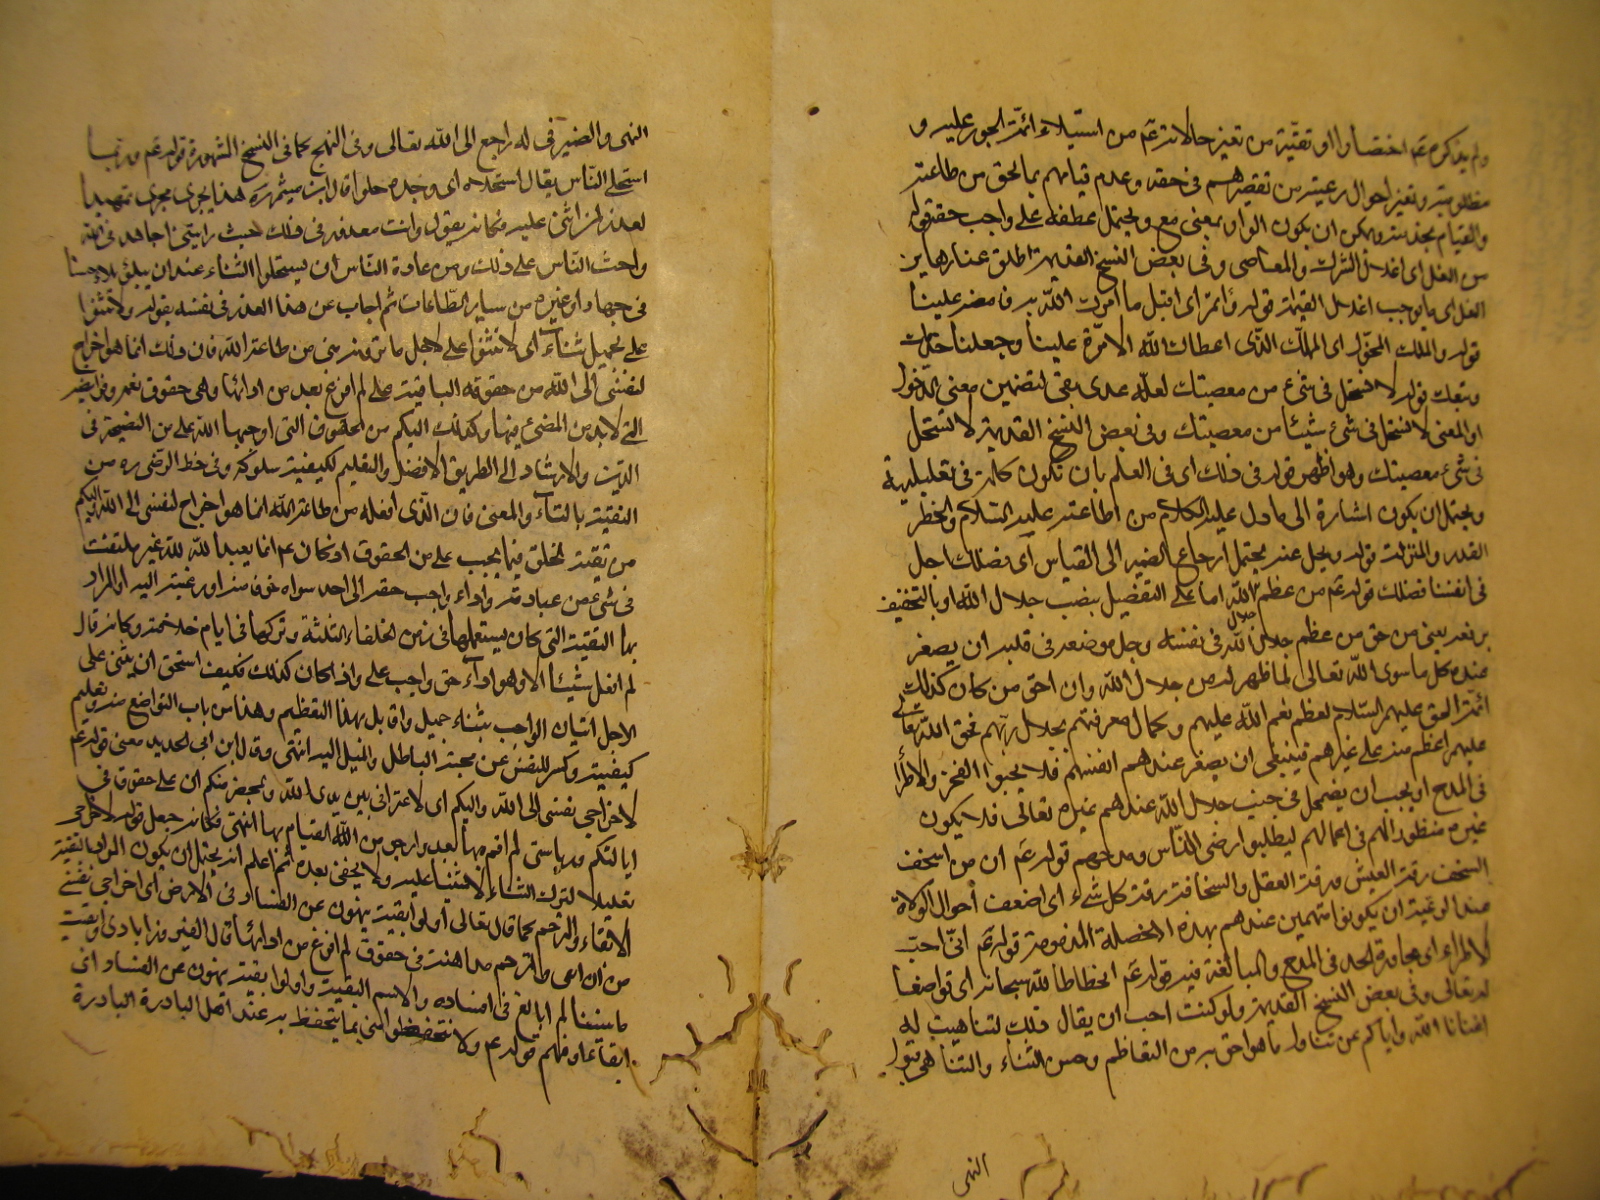 ولم يذكره عم اختصارا او تقية من تغير حالاته عم من استيلاء ائمة الجور عليه و
مظلوميته وتغير احوال رعيته من تقصيرهم في حقه وعدم قيامهم بما يحق من طاعته
والقيام بخدمته ويمكن ان يكون الواو بمعنى مع ويحتمل عطفه على واجب حقه قوله
من الغل اى اغلال الشرك والمعاصى وفى بعض النسخ القديمة اطلق عنا رهاين
الغل اى ما يوجب اغلال القيمة قوله وائتمر اى اقبل ما امرك الله به فامضه علينا
قوله والملك المخول اى الملك الذى اعطاك الله الامرة علينا وجعلنا خدمك
وتبعك قوله لا نستحل فى شىء من معصيتك لعله عدى بفى لتضمين معنى الدخول
او المعنى لا نستحل فى شىء شيئا من معصيتك وفى بعض النسخ القديمة لا نستحل
فى شىء معصيتك وهو اظهر قوله فى ذلك اى فى العلم بان تكون كلمة فى تعليلية
ويحتمل ان يكون اشارة الى ما دل عليه الكلام من اطاعته عليه السلام والخطر
القدر والمنزلة قوله ويجل عنه يحتمل ارجاع الضمير الى القياس اى فضلك اجل
فى انفسنا فضلك قوله عم من عظم جلال الله اما على التفعيل بنصب جلال الله او بالتخفيف
برفعه يعنى من حق من عظم جلال الله فى نفسه وجل موضعه فى قلبه ان يصغر
عنده كل ما سوى الله تعالى لما ظهر له من جلال الله وان احق من كان كذلك
ائمة الحق عليهم السلام لعظم نعم الله عليهم وكمال معرفتهم بجلال ربهم فحق الله تعالى
عليهم اعظم منه على غيرهم فينبغى ان يصغر عندهم انفسهم فلا يحبوا الفخر والاطراء
فى المدح او يجب ان يضمحل فى جنب جلال الله عندهم غيره تعالى فلا يكون
غيره منظورا لهم فى اعمالهم ليطلبوا رضى الناس ومدحهم قوله عم ان من اسخف
السخف رقة العيش ورقة العقل والسخافة رقة كل شىء اى اضعف أحوال الولاة
عند الرعية ان يكونوا متهمين عندهم بهذه الخصلة المذمومة قوله عم انى احب
الاطراء اى مجاوزة الحد فى المدح والمبالغة فيه قوله عم انحطاطا لله سبحانه اى تواضعا
له تعالى وفى بعض النسخ القديمة ولو كنت احب ان يقال ذلك لتناهيت له
اغنانا الله واياكم عن تناول ما هو احق به من التعاظم وحسن الثناء والتناهى قبول
النهى
النهى والضمير فى له راجع الى الله تعالى وفى النهج كما فى النسخ المشهورة قوله عم وربما
استحلى الناس يقال استحلاه اى وجده حلوا قال ابن ميثم ره هذا يجرى مجرى تمهيد
لعذر لمن اثنى عليه فكانه يقول وانت معذور فى ذلك حيث رايتنى اجاهد فى الله
واحث الناس على ذلك ومن عادة الناس ان يستحلوا الثناء عند ان يبلوا بلاء حسنا
فى جهاد او غيره من ساير الطاعات ثم اجاب عن هذا العذر فى نفسه بقوله ولا تثنوا
على بجميل ثناء اى لا تثنوا على لاجل ما ترونه منى من طاعة الله فان ذلك انما هو اخراج
لنفسى الى الله من حقوقه الباقية على لم افرغ بعد من ادائها وهى حقوق نعمه وفرايضه
التى لا بد من المضى فيها وكذلك اليكم من الحقوق التى اوجبها الله على من النصيحة فى
الدين والارشاد الى الطريق الافضل والتعليم لكيفية سلوكه وفى خط الرضى ره من
التقية بالتاء والمعنى فان الذى افعله من طاعة الله انما هو اخراج لنفسى الى الله واليكم
من تقية الخلق فيما يجب على من الحقوق اذ كان عم انما يعبد الله لله غير ملتفت
فى شىء من عبادته واداء واجب حقه الى احد سواه خوفا منه او رغبة اليه او المراد
بها التقية التى كان يستعملها فى زمن الخلفاء الثلثة وتركها فى ايام خلافته وكانه قال
لم افعل شيئا الا وهو اداء حق واجب على واذا كان كذلك فكيف استحق ان يثنى على
لاجل اتيان الواجب بثناء جميل واقابل بهذا التعظيم وهذا من باب التواضع منه وتعليم
كيفيته وكسر للنفس عن محبة الباطل والميل اليه انتهى وقال ابن ابى الحديد معنى قوله عم
لاخراجى نفسى الى الله واليكم اى لاعترافى بين يدى الله وبمحضر منكم ان على حقوقا فى
ايالتكم ورياستى لم اقم بها بعد وارجو من الله القيام بها انتهى فكانه جعل قوله لاخراجى
تعليلا لترك الثناء لا مثنيا عليه ولا يخفى بعده ثم اعلم انه يحتمل ان يكون المراد بالبقية
الابقاء والترحم كما قال تعالى أولوا بقية ينهون عن الفساد فى الارض اى اخراجى نفسى
من ان ابقى واترحم مداهنة فى حقوق لم افرغ من ادائها قال الفيروزابادى وابقيت
ما بيننا لم ابالغ فى افساده والاسم البقية واولوا بقية ينهون عن الفساد اى
ابقاء او فهم قوله عم ولا تتحفظوا منى بما يتحفظ به عند اهل البادرة البادرة